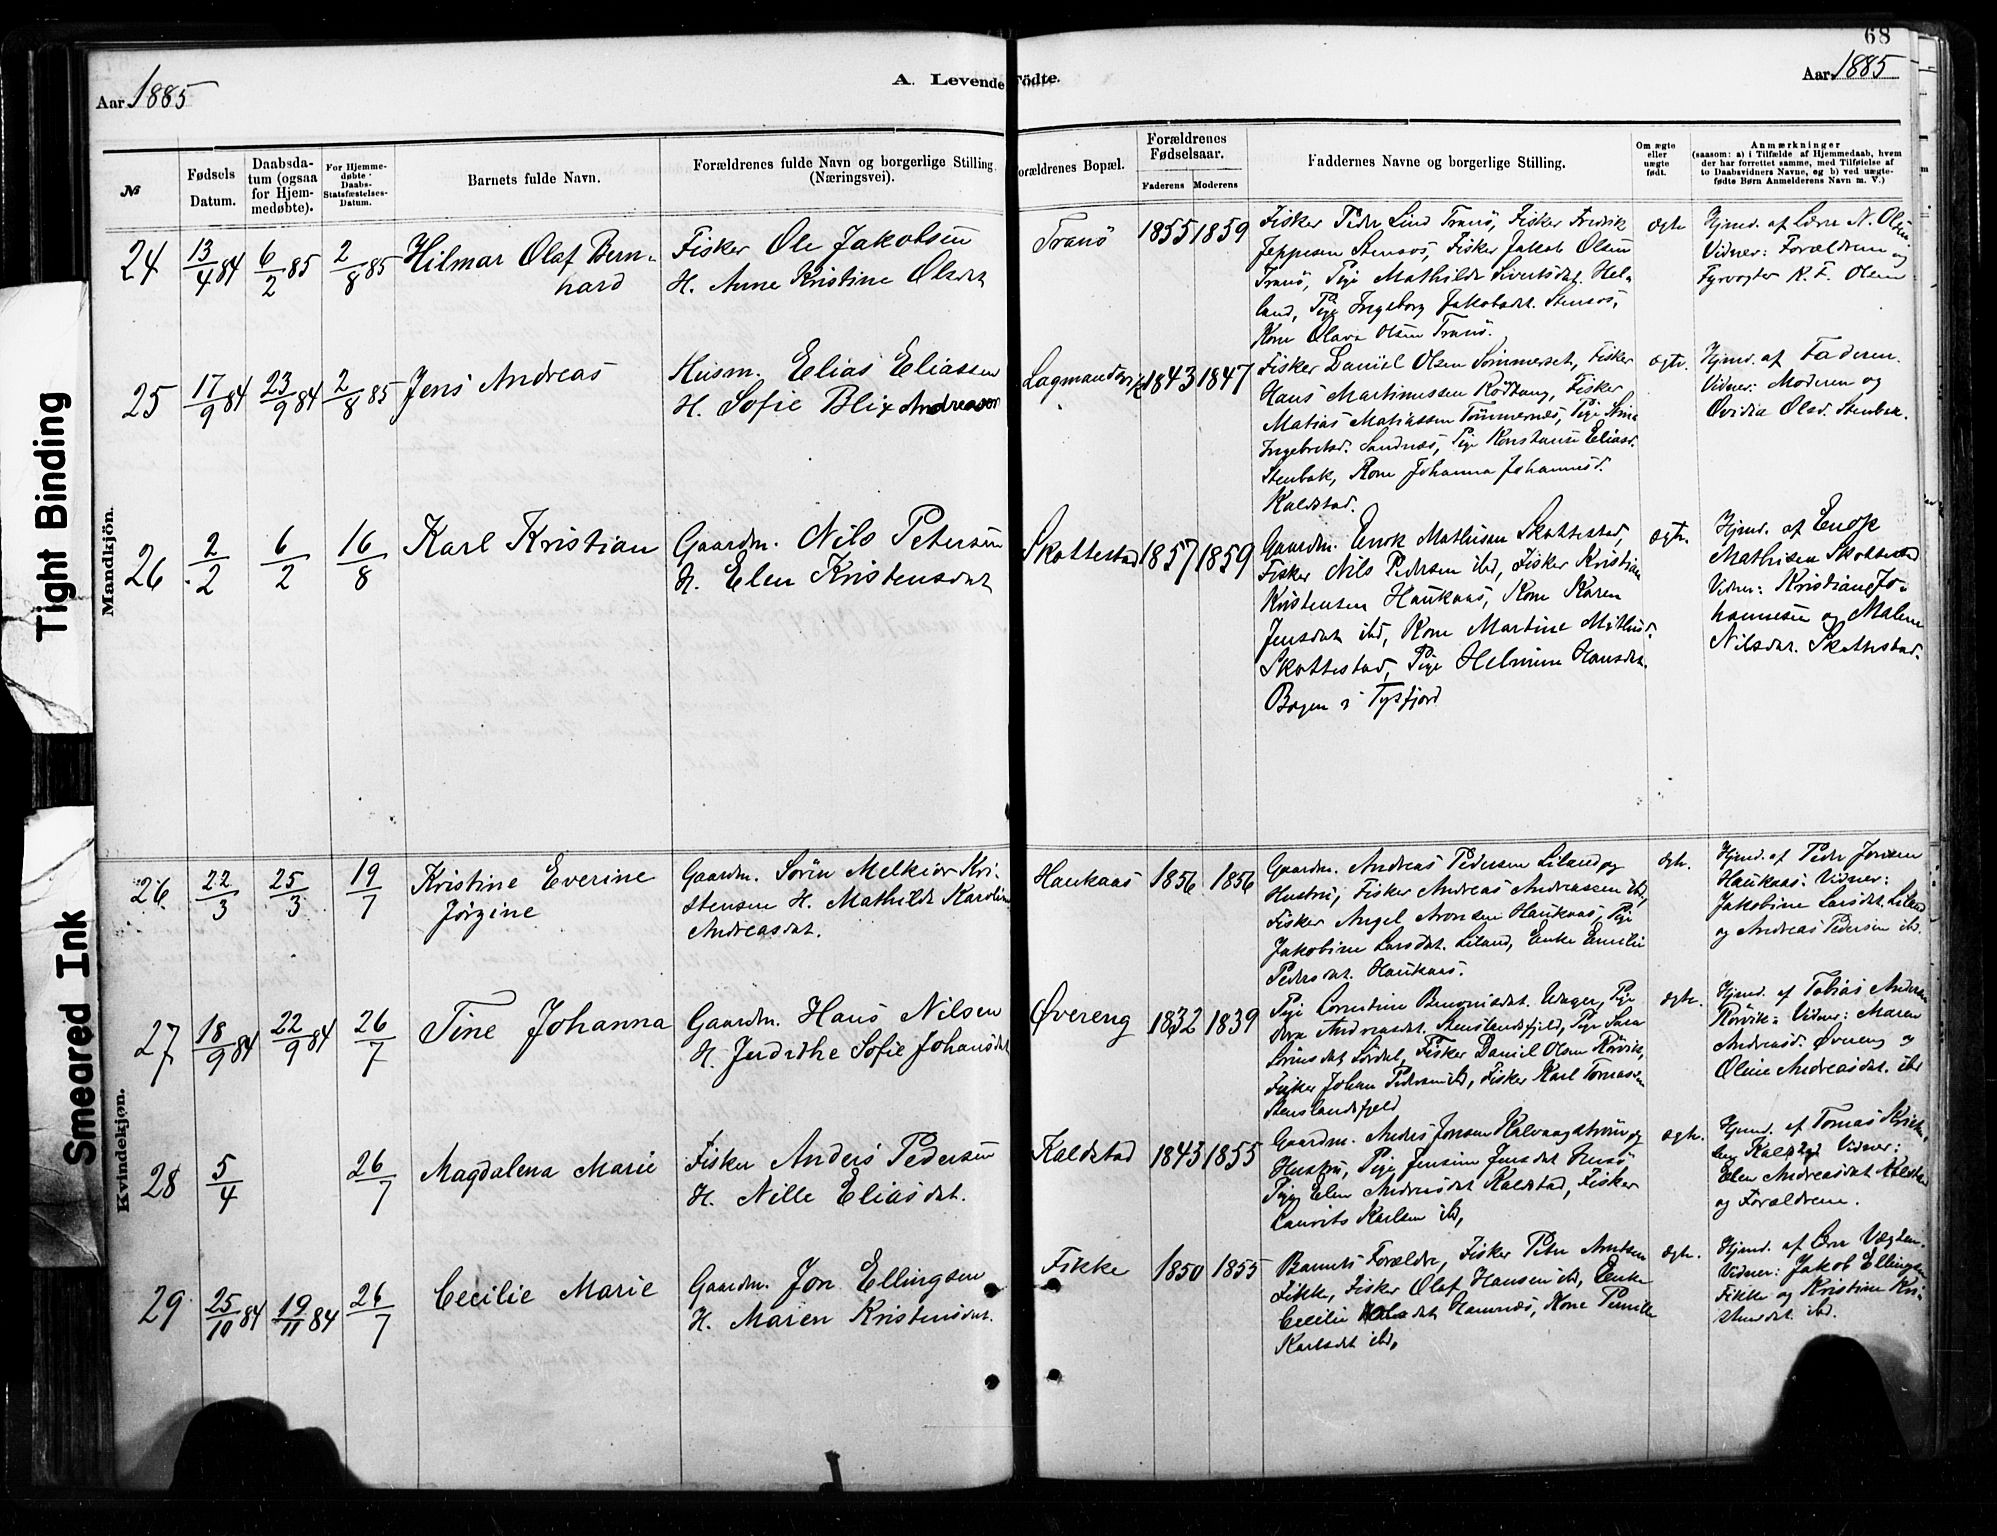 68
Aar 1885
A. Levende Födte.
Aar 1885
№
Fødsels Datum.
Daabsda-
tum (ogsaa
for Hjem-
medøbte).
For Hjemme-
døbte
Daabs-
Statsfæstelses-
Datum.
Barnets fulde Navn.
Forældrenes fulde Navn og borgerlige Stilling.
(Næringsvei).
Forældrenes Bopæl.
Forældrenes
Fødselsaar.
Faderens Moderens
Faddernes Navne og borgerlige Stilling.
Om ægte
eller
uægte
født.
Anmærkninger
(saasom: a) i Tilfælde af Hjemmedaab, hvem
der har forrettet samme, med Tilføielse af
to Daabsvidners Navne, og b) ved uægte-
fødte Børn Anmelderens Navn m. V.)
Tight Binding
Smeared Ink
Mandkjön.
Kvindekjøn.
24 13/4 84 6/2 85 2/8 85 Hilmar Olaf Bern-
hard
Fisker Ole Jakobsen
H. Anne Kristine Olsdt
Tranö 1855 1859
Fisker Peder Lind Tranö, Fisker Fredrik
Jeppesen Stensös, Fisker Jakob Olsen
Tranö, Pige Mathilde Sivertsdat. Hel-
land, Pige Ingeborg Jakobsdt. Stensös,
Kone Olava Olsen Tranö.
ægte
Hjmd. af Lærer N. Olsen.
Vidner: Forældrene og
Fyrvogter K. F. Olsen
25 17/9 84 23/9 84 2/8 85 Jens Andreas
Husm. Elias Eliassen
H. Sofie Blix Andreasen
Lagmandsvik 1843 1847
Fisker Daniel Olsen Sommerset, Fisker
Hans Martinussen Rödtang, Fisker
Matias Matiassen Tömmernes, Pige
Ingebrtsd. Sandnæs, Pige Konstanse Eliasd.
Stenbak, Kone Johanna Johannesd.
Kaldstad.
ægte.
Hjmd. af Faderen.
Vidner: Moderen og
Ovidia Olsd. Stenbak.
26 2/2 6/2 16/8 Karl Kristian
Gaardm. Nils Petersen
H. Elen Kristensdat
Skottestad 1857 1859
Gaardm. Enok Mathisen Skottestad,
Fisker Nils Pedersen ibd, Fisker Kristian
Kristensen Haukaas, Kone Karen
Jensdat ibd, Kone Martine Mathisd.
Skottestad, Pige Helmine Hansdat.
Bogen i Tysfjord
ægte.
Hjmd. af Enok
Mathisen Skottestad
Vidner: Kristian Jo-
hannesen og Malene
Nilsdat. Skottestad.
26 22/3 25/3 19/7 Kristine Everine
Jørgine
Gaardm. Sørin Melkior Kri-
stensen H. Mathilde Karoline
Andreasdat.
Haukaas 1856 1856
Gaardm. Andreas Pedersen Liland og
Hustru, Fisker Andreas Andreassen ibd,
Fisker Angel Aronsen Haukaas, Pige
Jakobine Larsdat. Liland, Enke Emilie
Pedersdat. Haukaas.
ægte.
Hjmd. af Peder Jensen
Haukaas. Vidner:
Jakobine Larsdat. Liland
og Andreas Pedersen ibd.
27 18/9 84 22/9 84 26/7 Tine Johanna
Gaardm. Hans Nilsen
H. Jndridke Sofie Johansdat
Øvereng 1832 1839
Pige Corneline Benoniedat. Ulager, Pige
Andreasdat. Stenslandsfjeld, Pige Sara
Sördal, Fisker Daniel Olsen Rörvik,
Fisker Johan Pedersen ibd, Fisker Karl Tomassen
Stenslandsfjeld
ægte.
Hjmd. af Tobias Andersen
Rörvik. Vidner: Maren
Andreasd. Øvereng og
Oline Andreasdat. ibd
28 5/4 26/7 Magdalena Marie
Fisker Anders Pedersen
H. Nille Eliasdat.
Kaldstad 1843 1855
Gaardm. Anders Jonsen Kalvaagström og
Hustru, Pige Jensine Jensdat
Pige Elen Andreasdat Kaldstad, Fisker
Laurits Karlsen ibd,
ægte.
Hjmd. af Tomas
Vidner:
Elen Andreasdat Kaldstad
og Forældrene.
29 25/10 84 19/11 84 26/7 Cecilie Marie
Gaardm. Jon Ellingsen
H. Maren Kristensdat.
Fikke 1850 1855
Barnets Forældre, Fisker Peter Arntsen
Fikke, Fisker Olaf Hansen ibd, Enke
Cecilie Hamnæs, Kone Pernille
Karlsdat ibd,
ægte.
Hjmd. af
Vidner: Jakob Ellingsen
Fikke og Kristine Kri-
stensdat. ibd.